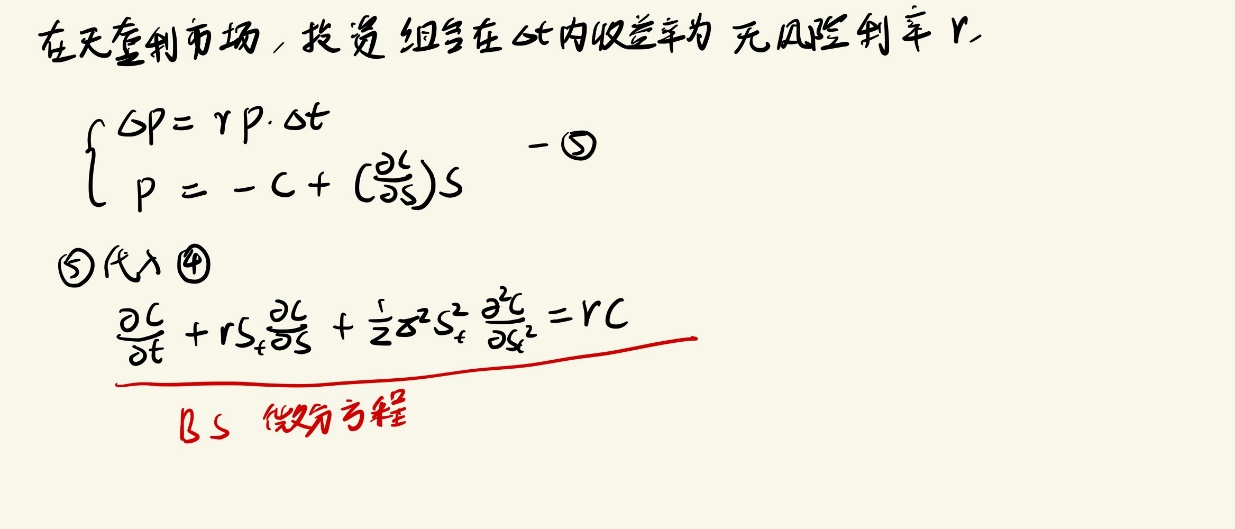 在无套利市场,投资组合在Δt内收益率为无风险利率r,
{ ΔP = rP·Δt
P = -C + (∂C/∂S)S -⑤
⑤代入④
∂C/∂t + rSₜ ∂C/∂S + 1/2 σ²Sₜ² ∂²C/∂Sₜ² = rC
BS 微分方程